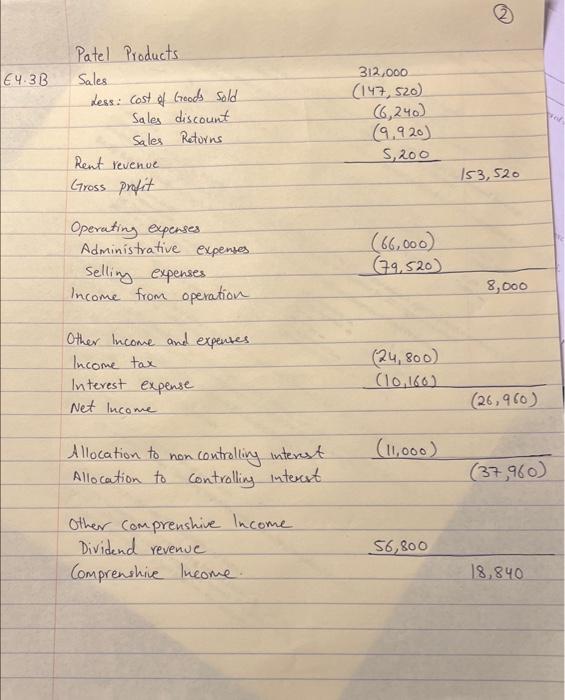 2
Patel Products
E4.3B Sales 312,000
Less: Cost of Goods Sold (147,520)
Sales discount (6,240)
Sales Returns (9,920)
Rent revenue 5,200
Gross profit 153,520
Operating expenses
Administrative expenses (66,000)
Selling expenses (79,520)
Income from operation 8,000
Other Income and expenses
Income tax (24,800)
Interest expense (10,160)
Net Income (26,960)
Allocation to non controlling interest (11,000)
Allocation to controlling interest (37,960)
Other Comprenshive Income
Dividend revenue 56,800
Comprenshive Income. 18,840